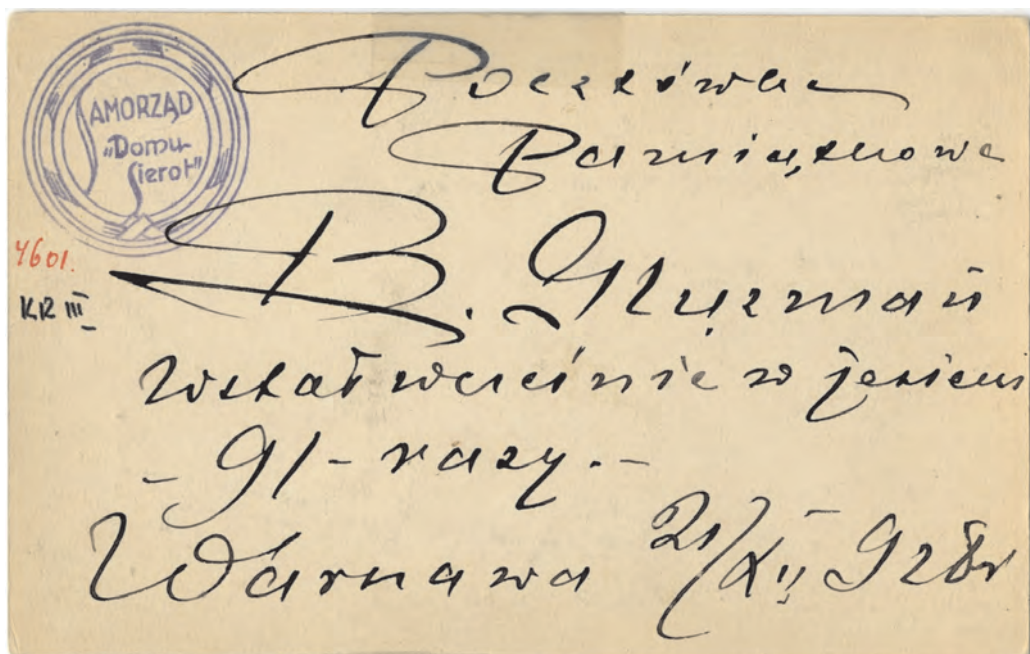 SAMORZĄD
„Domu
Sierot”
Pocztówka
Pamiątkowa
4601.
KR III
B. Gluzman
Wstał wcześnie w jesieni
- 91 - razy. -
Warszawa 21/XII 928r